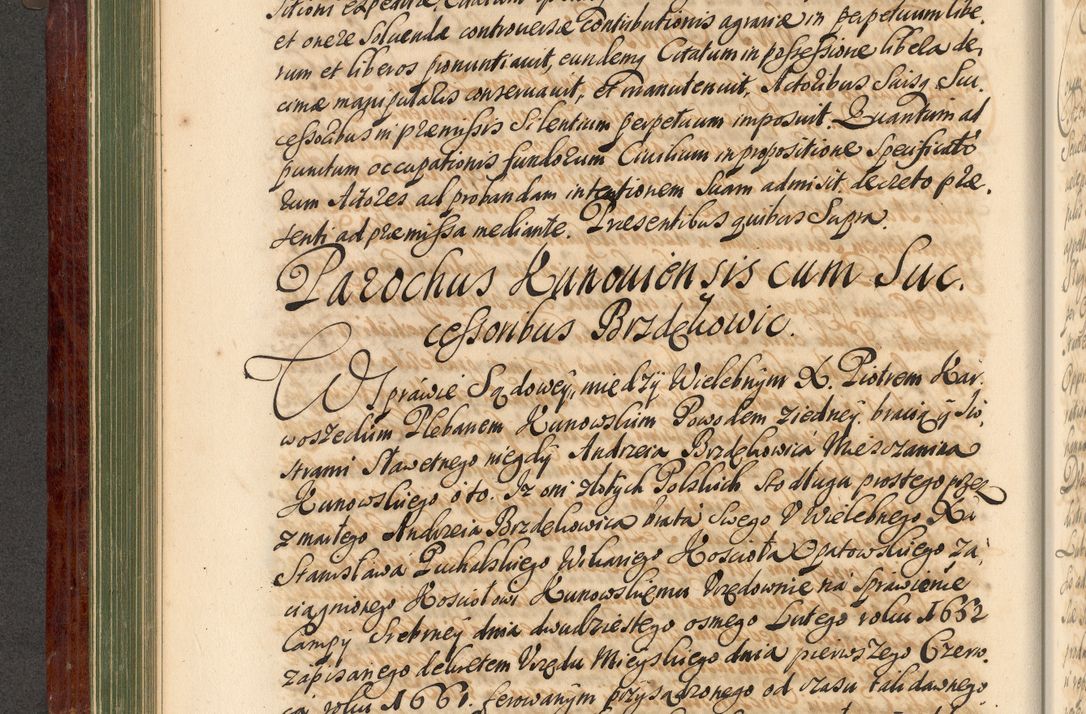 sitioni expedire, Citatum
et onere soluenda controuersæ Contributionis agrariæ in perpetuum libe,
rum et liberos pronuntiauit, eundemq Citatum in possessione libela de,
cimæ manipularis conseruauit, et manutenuit, Actoribus suisq Suc,
cessoribus in præmissis Silentium perpetuum imposuit. Quantum ad
punctum occupationis fundorum Ciuilium in propositione Specificato
rum Actores ad probandam intentionem Suam admisit decreto præ,
senti ad præmissa mediante. Præsentibus quibus Supra.
Parochus Kunouiensis cum Suc.
cessoribus Brzdękowic.
W Sprawie Sądowey, między Wielebnym X. Piotrem Kar,
woszeckim Plebanem Kunowskim Powodem z iedney, bracią y Sio
strami Sławetnego niegdy Andrzeia Brzdękowica Mieszczanina
Kunowskiego o to. Iż oni złotych Polskich sto długu prostego przez
zmarłego Andrzeia Brzdękowica brata swego v Wielebnego Xa
Stanisława Puchalskiego Wikariego Kościoła Opatowskiego za,
ciągnionego Kościołowi Kunowskiemu Vrzędownie na Sprawienie
Lampy Srebrney dnia dwudziestego osmego Lutego roku 1652
zapisanego dekretem Vrzędu Mieyskiego dnia pierwszego Czerw,
ca roku 1661. ferowanym przysądzonego od czasu tak dawnego